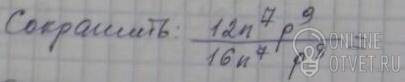 Сократить: 12n⁷p⁹
16n⁷p⁹
ONLINE
OTVET.RU